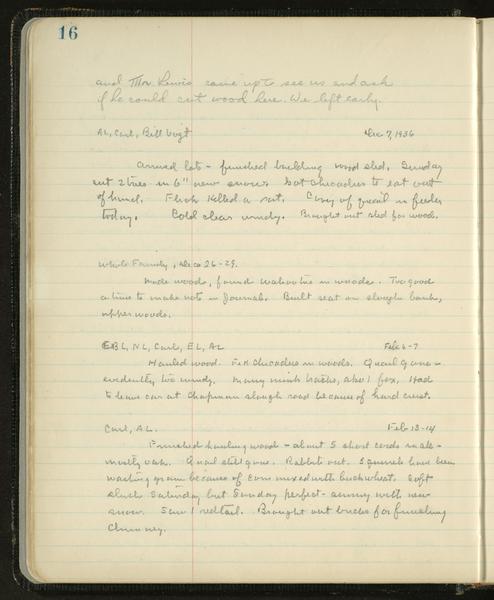 16
and Mr. Lewis came up to see us and ask
if he could cut wood here. We left early.
AL, Carl, Bill Vogt Dec 7, 1936
Arrived late - finished building wood shed. Sunday
cut 2 trees in 6" new snow. Got chicadees to eat out
of hand. Flick killed a rat. Covey of quail in feeder
today. Cold clear windy. Brought out sled for wood.
Whole Family, Dec 26-29.
Made wood, found wahoo tree in woods. Too good
a time to make notes in Journal. Built seat on slough bank,
upper woods.
EBL, NL, Carl, EL, AL Feb 6-7
Hauled wood. Fed chicadees in woods. Quail gone -
evidently too windy. Many mink tracks, also 1 fox. Had
to leave car at Chapman slough road because of hard crust.
Carl, AL. Feb 13-14
Finished hauling wood - about 5 short cords made -
mostly oak. Quail still gone. Rabbits out. Squirrels have been
wasting grain because of corn mixed with buckwheat. Soft
slush Saturday but Sunday perfect - sunny with new
snow. Saw 1 redtail. Brought out bricks for finishing
chimney.